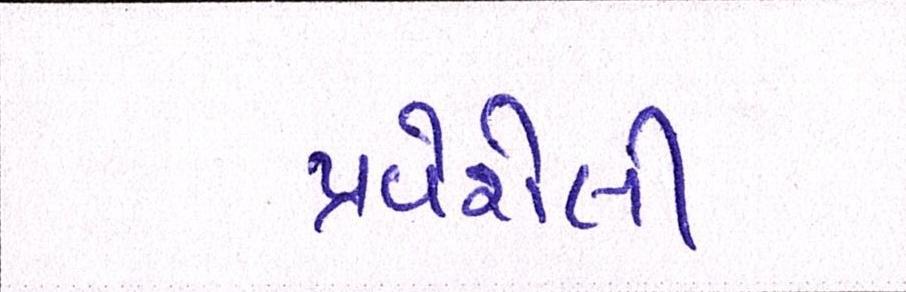 પ્રવેશેલી